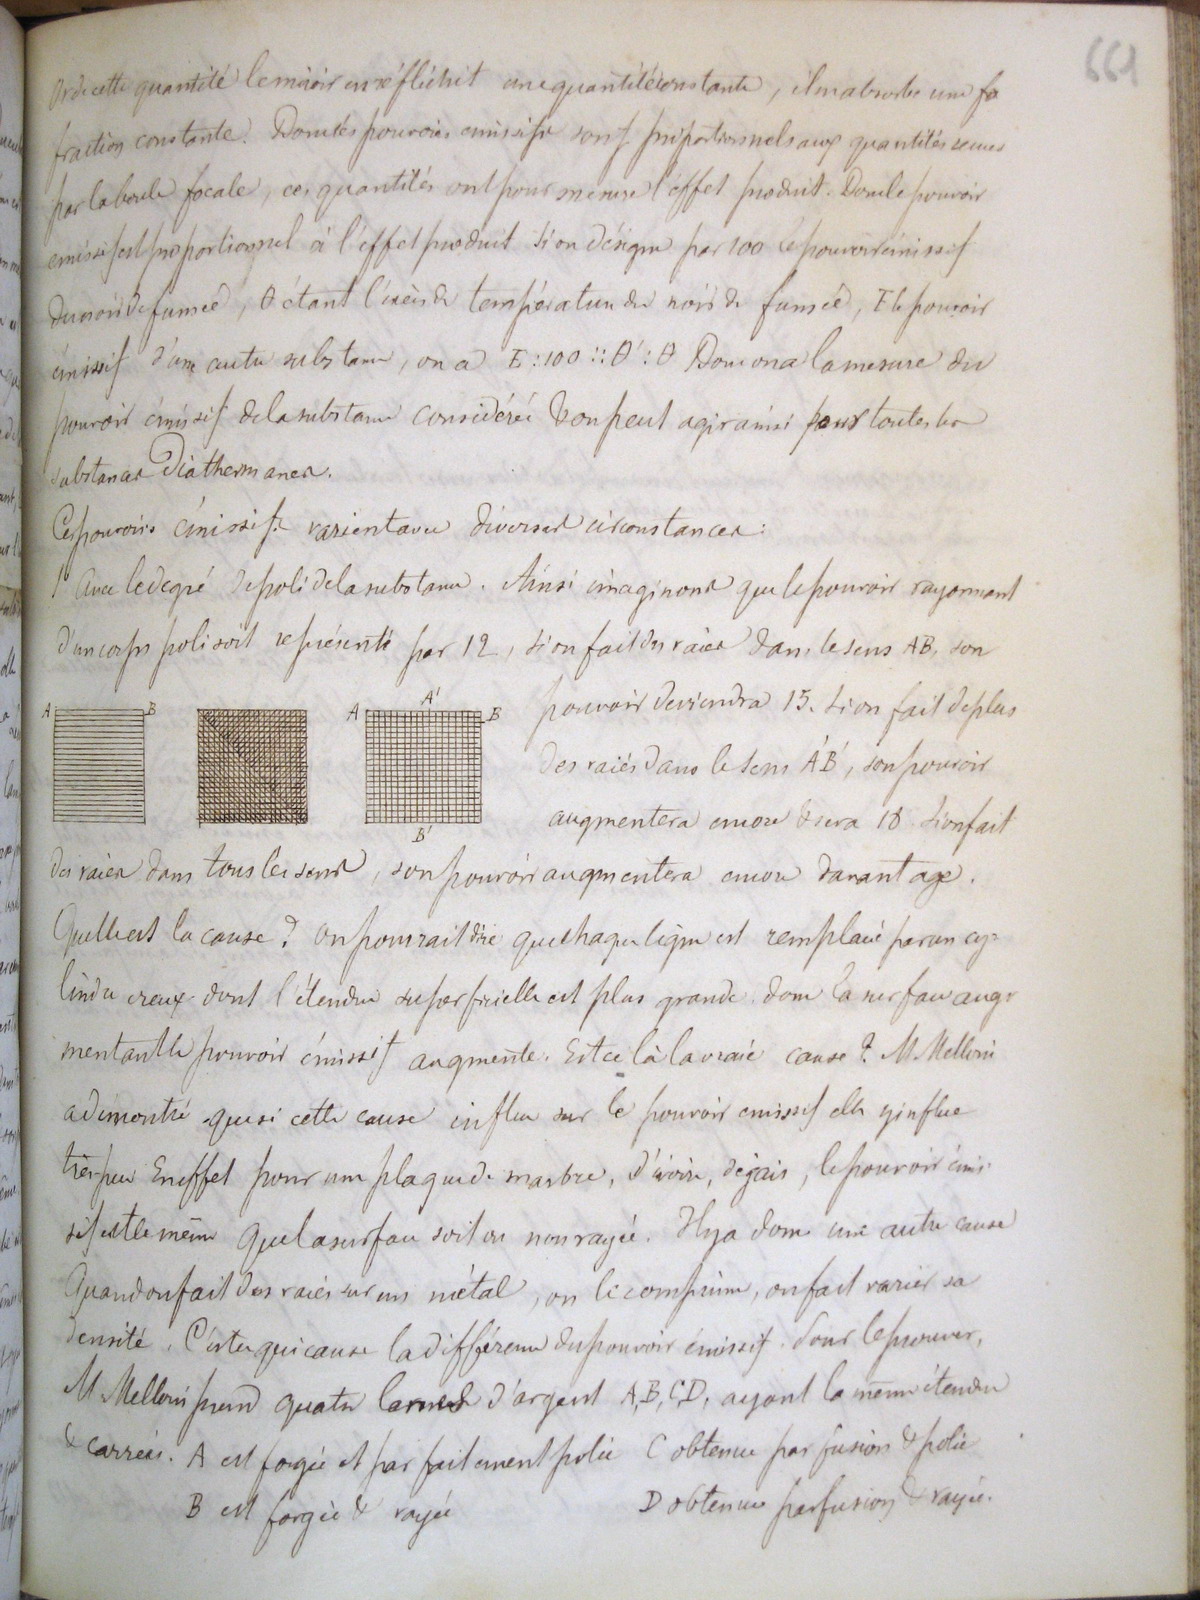 661
Or de cette quantité le miroir en réfléchit une quantité constante, il en absorbe une fa
fraction constante. Donc les pouvoirs emissifs sont proportionnels aux quantités recues
par la boule focale, ces quantités ont pour mesure l'effet produit. Donc le pouvoir
emissif est proportionnel à l'effet produit si on désigne par 100 le pouvoir émissif
du noir de fumée, θ étant l'excès de température du noir de fumée, E le pouvoir
émissif d'une autre substance, on a E : 100 :: θ' : θ Donc on a la mesure du
pouvoir émissif de la substance considérée & on peut agir ainsi pour toutes les
substances Diathermanes.
Ces pouvoirs émissifs varient avec diverses circonstances :
1° Avec le degré de poli de la substance. Ainsi imaginons que le pouvoir rayonnant
d'un corps poli soit représenté par 12, si on fait des raies dans le sens AB, son
A B A A' B B'
pouvoir deviendra 15. si on fait de plus
des raies dans le sens A'B', son pouvoir
augmentera encore & sera 18. si on fait
des raies dans tous les sens, son pouvoir augmentera encore davantage.
Quelle est la cause ? on pourrait dire que chaque ligne est remplacé par un cy-
lindre creux dont l'étendue superficielle est plus grande. donc la surface aug-
mentant le pouvoir émissif augmente. Est ce là la vraie cause ? M. Melloni
a démontré que si cette cause influe sur le pouvoir emissif elle y influe
très peu En effet pour une plaque de marbre, d'ivoire, de jais, le pouvoir émis-
sif est le même que la surface soit ou non rayée. Il y a donc une autre cause
Quand on fait des raies sur un métal, on le comprime, on fait varier sa
densité. C'est ce qui cause la différence du pouvoir émissif. Pour le prouver,
M. Melloni prend quatre lames d'argent A, B, C, D, ayant la même étendue
& carrées. A est forgée et parfaitement polie C obtenue par fusion & polie
B est forgée & rayée D obtenue par fusion & rayée.